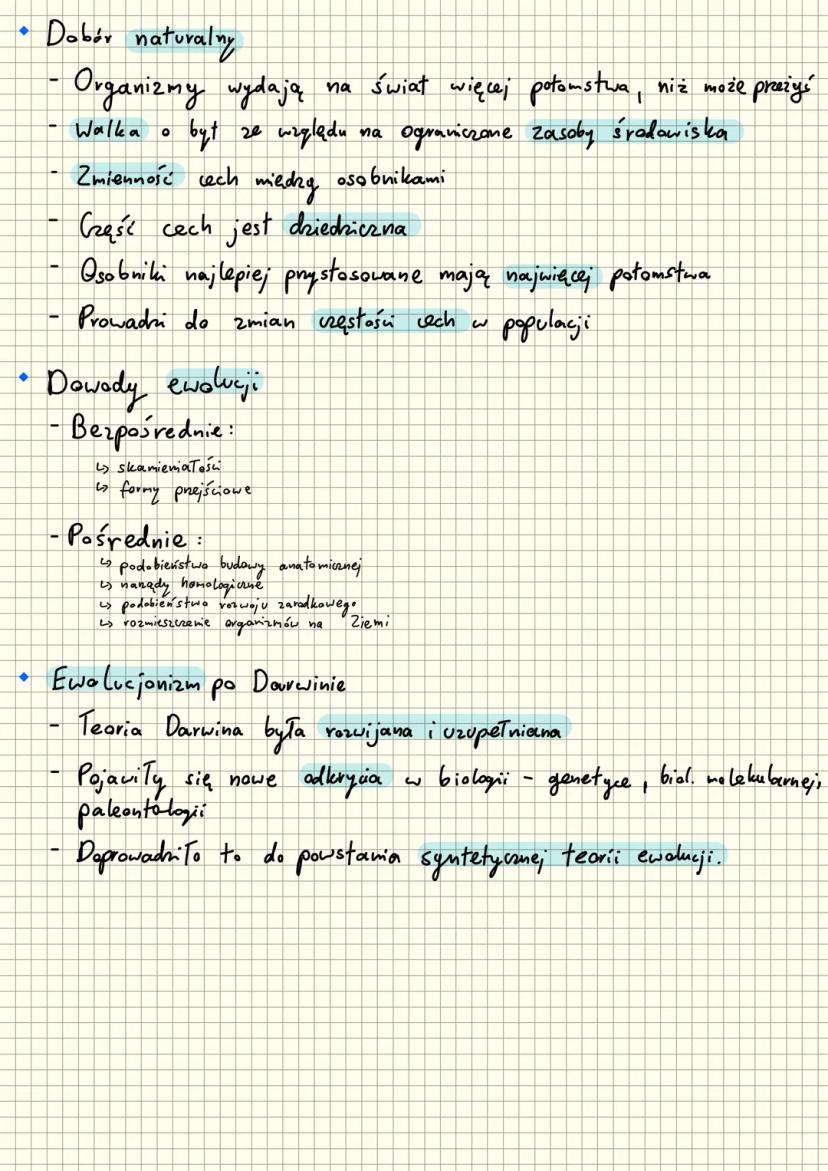 Dobór naturalny
- Organizmy wydają na świat więcej potomstwa, niż może przeżyć
- Walka o byt ze względu na ograniczone zasoby środowiska
- Zmienność cech między osobnikami
- Część cech jest dziedziczna
- Osobniki najlepiej przystosowane mają najwięcej potomstwa
- Prowadzi do zmian częstości cech w populacji
Dowody ewolucji
- Bezpośrednie:
↳ skamieniałości
↳ formy przejściowe
- Pośrednie:
↳ podobieństwo budowy anatomicznej
↳ narządy homologiczne
↳ podobieństwo rozwoju zarodkowego
↳ rozmieszczenie organizmów na Ziemi
Ewolucjonizm po Darwinie
- Teoria Darwina była rozwijana i uzupełniana
- Pojawiły się nowe odkrycia w biologii - genetyce, biol. molekularnej,
paleontologii
- Doprowadziło to do powstania syntetycznej teorii ewolucji.